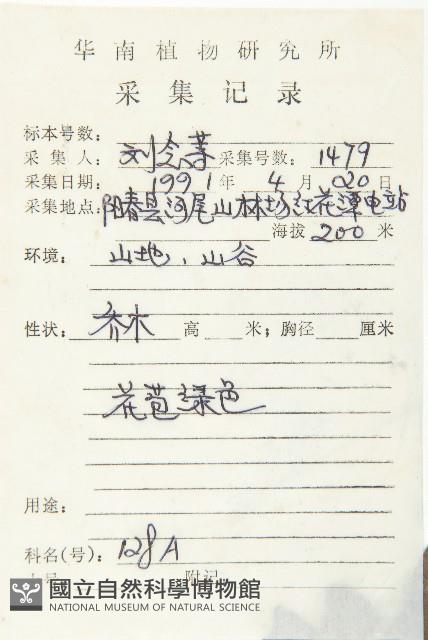 华南植物研究所
采集记录
标本号数:
采集人: 刘念等 采集号数: 1479
采集日期: 1991年 4月 020日
采集地点: 阳春县河尾山林场红花潭电站
海拔 200 米
环境: 山地、山谷
性状: 乔木 高 米; 胸径 厘米
花苞绿色
用途:
科名(号): 128A
附记
國立自然科學博物館
NATIONAL MUSEUM OF NATURAL SCIENCE